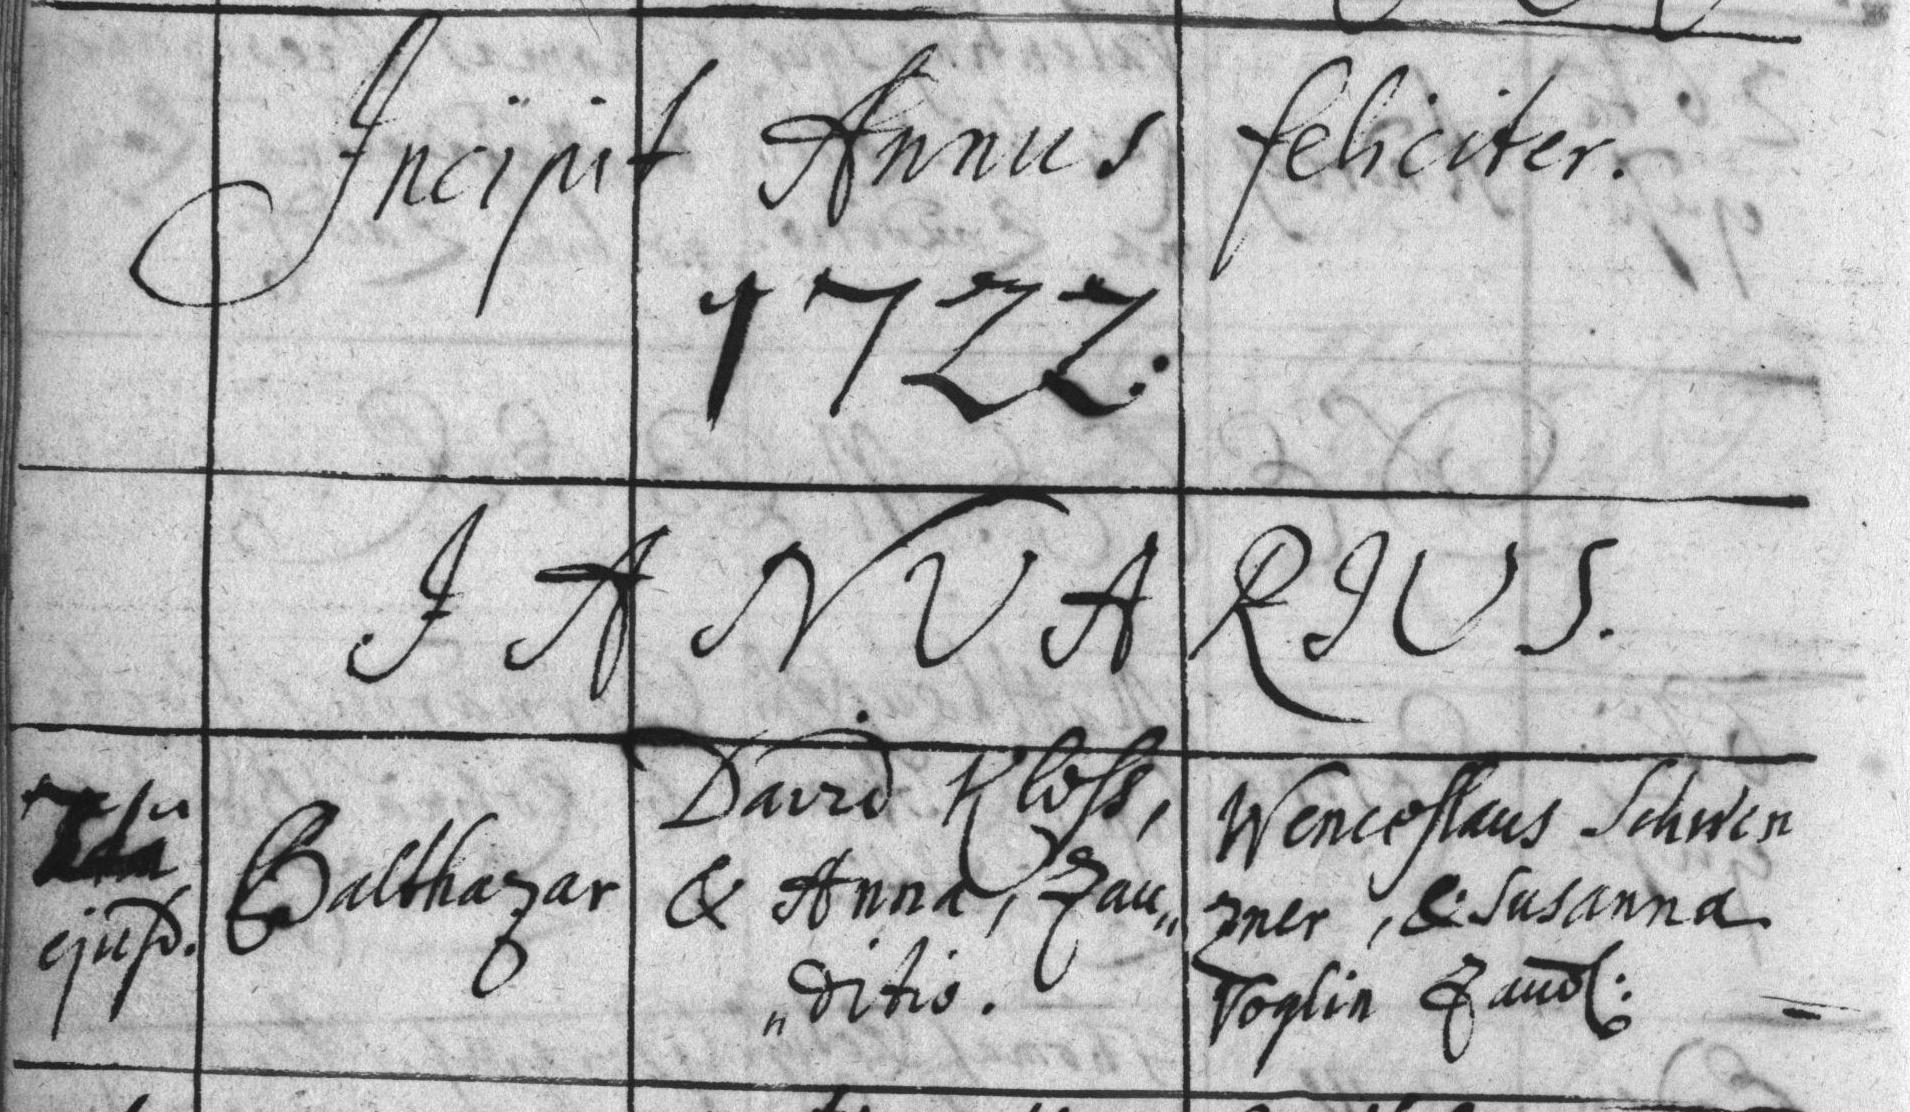 Incipit Annus feliciter.
1722.
JANUARIUS.
ejusd.
Balthazar
David Kloss,
& Anna, Zau„
„ditio.
Wenceslaus Schwen
zner, & Susanna
Voglin Zaud: